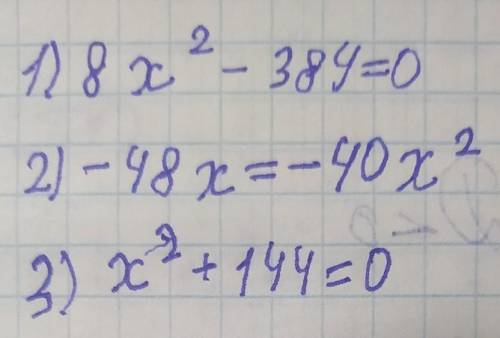 1) 8x² - 384 = 0
2) -48x = -40x²
3) x² + 144 = 0